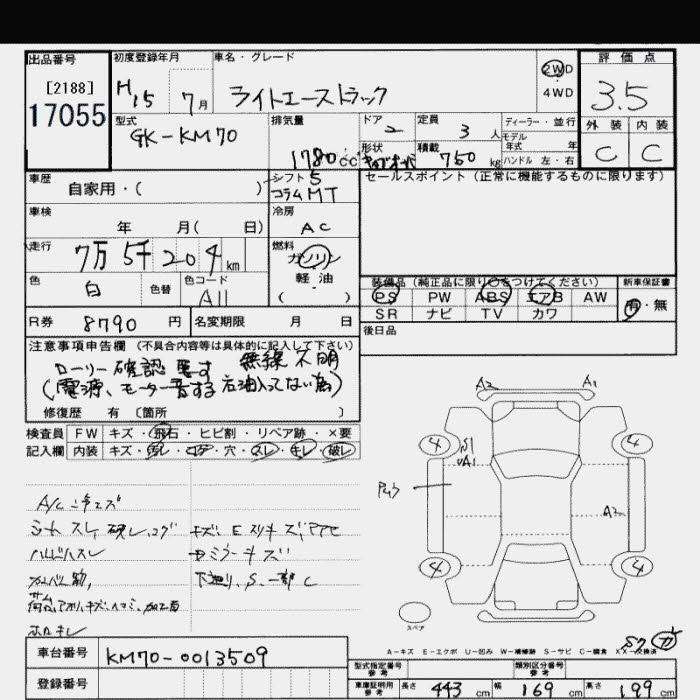 出品番号
[2188]
17055
初度登録年月
H15 7月
車名・グレード
ライトエーストラック
2WD
4WD
評価点
3.5
外装 内装
C C
型式
GK-KM70
排気量
1780cc
ドア
2
形状
定員
3人
積載
750kg
ディーラー・並行
モデル
年式 年
ハンドル 左・右
車歴
自家用・( )
シフト 5
コラム MT
セールスポイント(正常に機能するものに限ります)
車検
年 月( 日)
冷房
AC
走行
7万5千204km
燃料
ガソリン
軽油
( )
色
白
色替
色コード
A11
装備品(純正品に限り○をつけてください)
PS PW ABS エアB AW
SR ナビ TV カワ
新車保証書
有・無
R券
8790円
名変期限 月 日
後日品
注意事項申告欄(不具合内容等は具体的に記入して下さい)
ローリー確認要す 無線不明
(電源、モーター音する 石油入ってない為)
修復歴 有 〔箇所 〕
検査員 FW キズ・飛石・ヒビ割・リペア跡・×要
記入欄 内装 キズ・汚レ・コゲ・穴・スレ・キレ・破レ
A2 A1
4 4
S1
A1
A2
4 4
スペア
A-キズ E-エクボ U-凹み W-補修跡 S-サビ C-腐食 XX-交換済
シートスレ、破レ、コゲ
ハンドルスレ
下廻り、S、一部C
車台番号
KM70-0013509
登録番号
型式指定番号
参考
類別区分番号
参考
車庫証明用
参考
長さ 443cm 幅 169cm 高さ 199cm